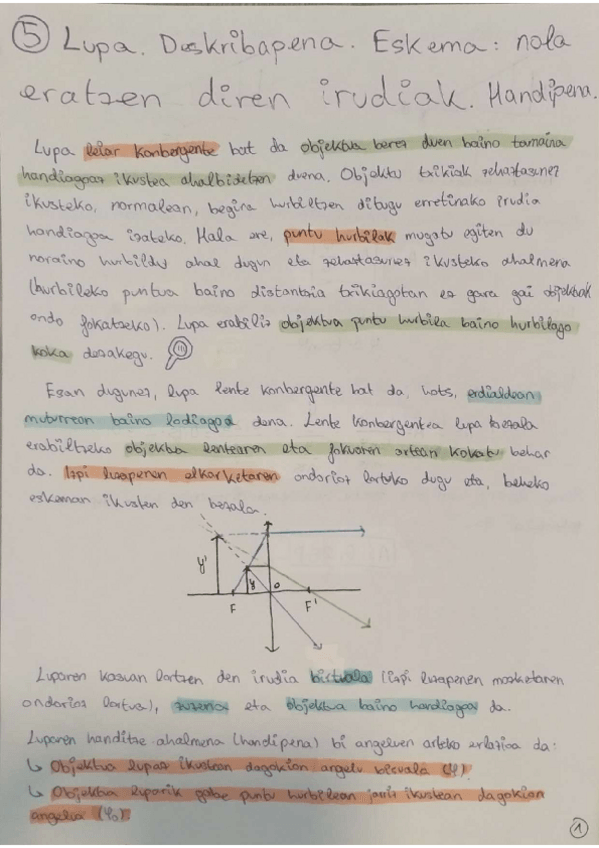 5 Lupa. Deskribapena. Eskema: nola
eratzen diren irudiak. Handipena.
Lupa leiar konbergente bat da objektua berez duen baino tamaina
handiagoaz ikustea ahalbidetzen duena. Objektu txikiak zehaztasunez
ikusteko, normalean, begira hurbiltzen ditugu erretinako irudia
handiagoa izateko. Hala ere, puntu hurbilak mugatu egiten du
noraino hurbildu ahal dugun eta zehaztasunez ikusteko ahalmena
(hurbileko puntua baino distantzia txikiagotan ez gara gai objektuak
ondo fokatzeko). Lupa erabiliz objektua puntu hurbila baino hurbilago
koka dezakegu.
Esan dugunez, lupa lente konbergente bat da, hots, erdialdean
muturretan baino lodiagoa dena. Lente konbergentea lupa bezala
erabiltzeko objektua lentearen eta fokuaren artean kokatu behar
da. Izpi luzapenen elkarketaren ondorioz lortuko dugu eta, beheko
eskeman ikusten den bezala.
y' y O F F'
Luparen kasuan lortzen den irudia birtuala (izpi luzapenen
ondorioz lortua), zuzena eta objektua baino handiagoa da.
Luparen handitze ahalmena (handipena) bi angeluen arteko erlazioa da:
↳ Objektua lupaz ikustean dagokion angelu bisuala (φ).
↳ Objektua luparik gabe puntu hurbilean jarriz ikustean dagokion
angelua (φ₀)
1